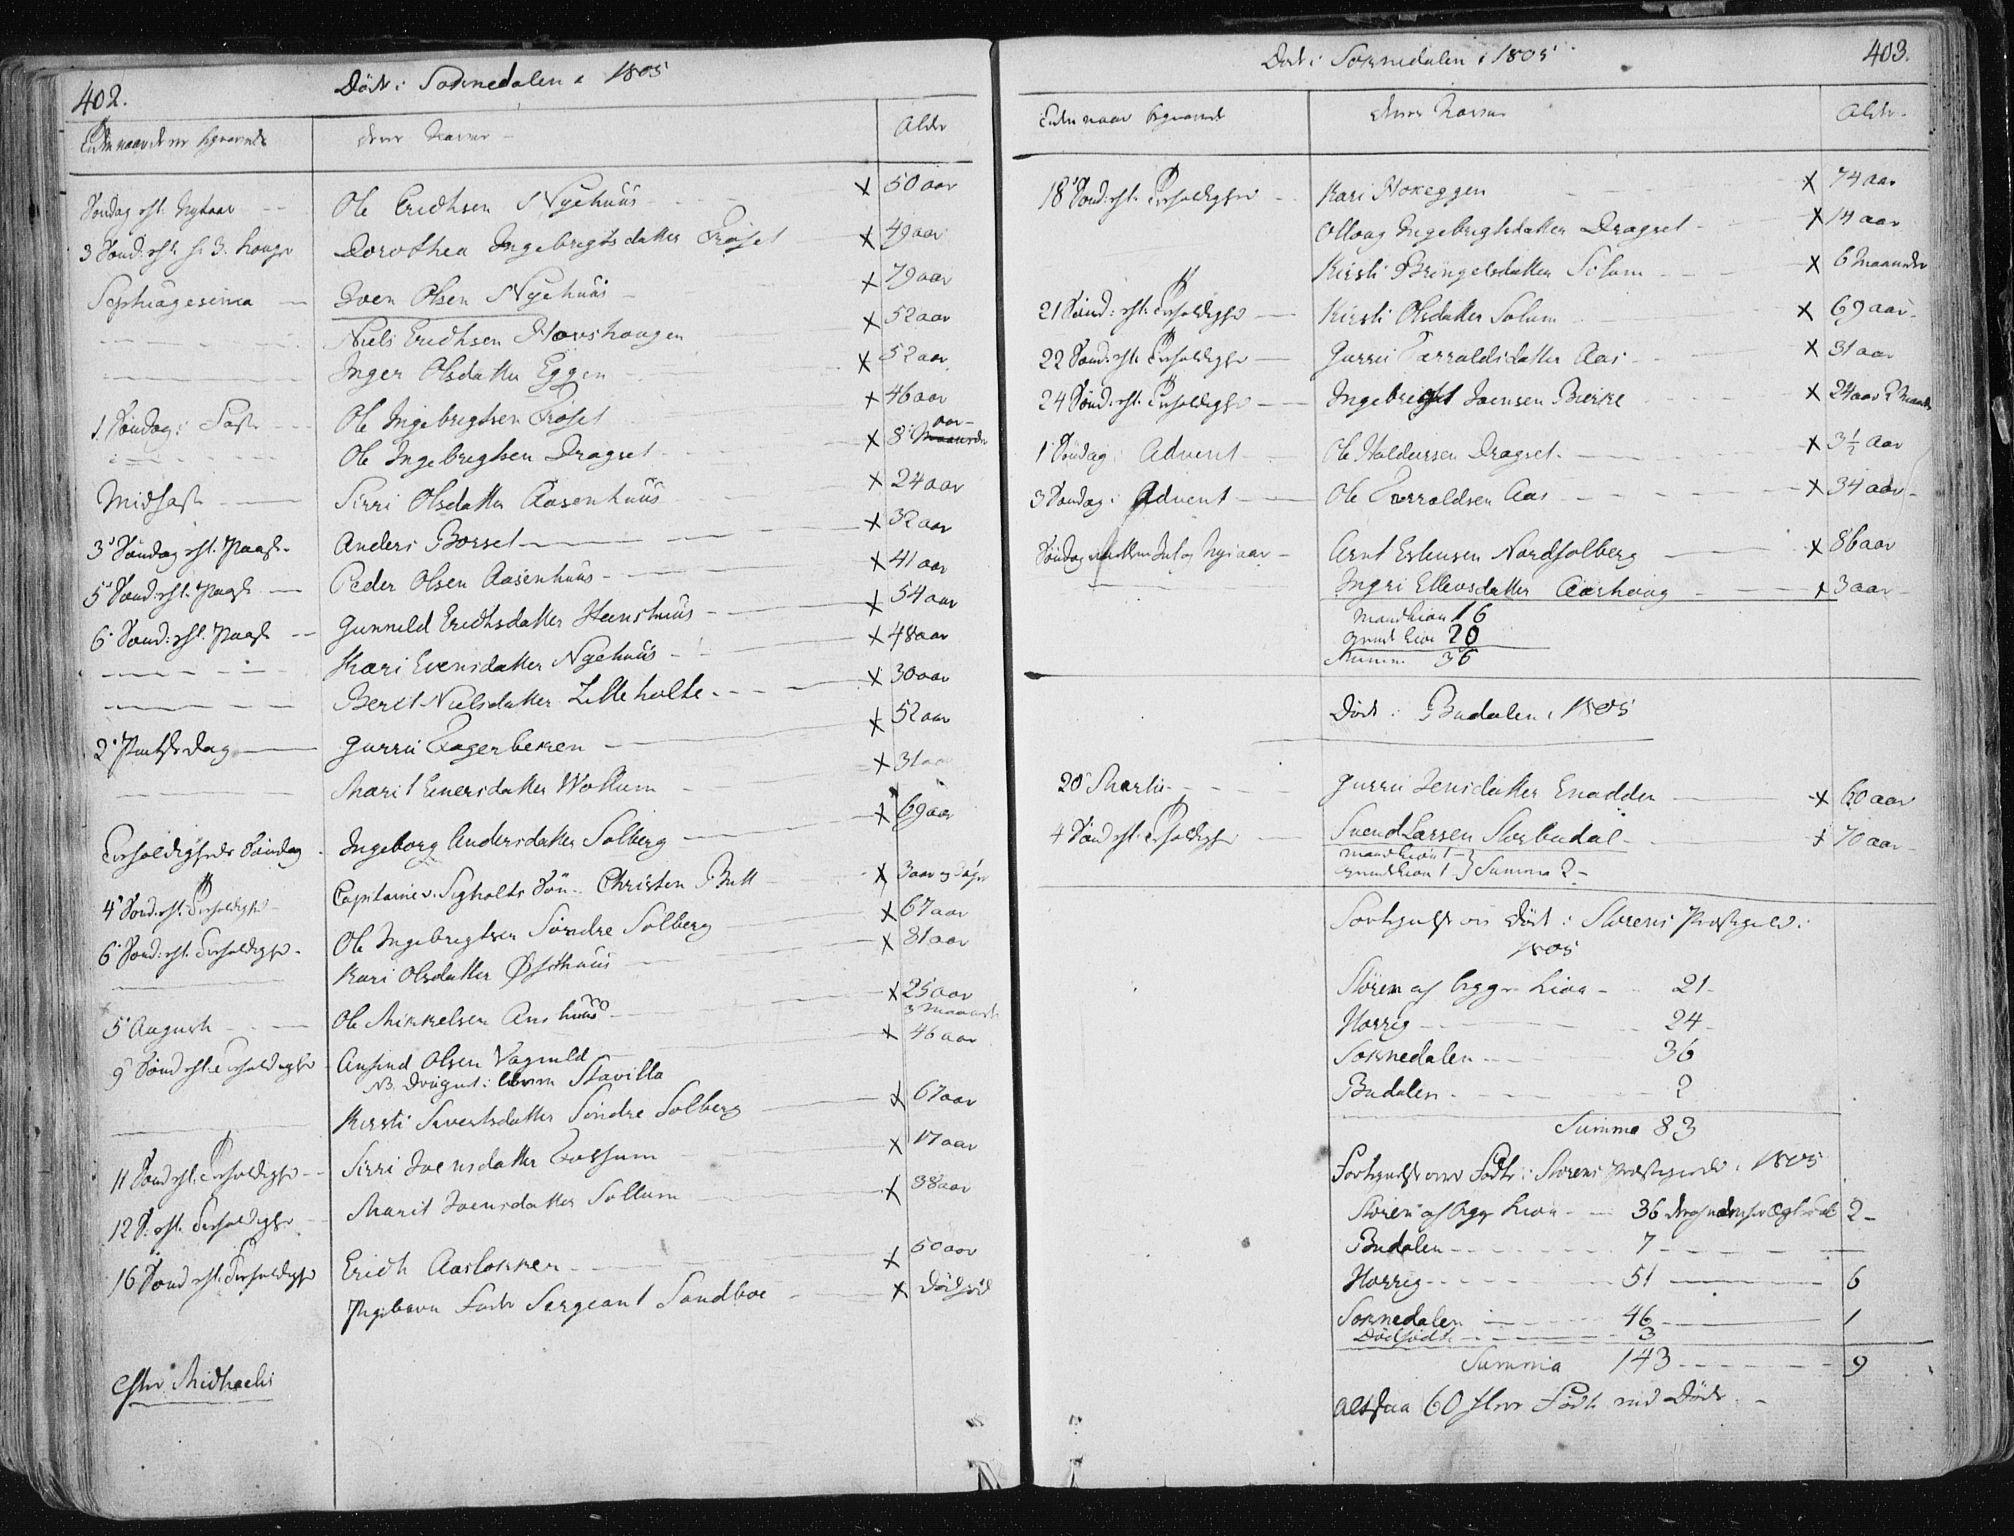 402.
Døde i Soknedalen i 1805
Tiden naar de ere begravede
deres Navne
Alder
Søndag eft. Nytaar Ole Erichsen Nyehuus x 50 aar
3 Sønd: eft. h. 3. Konger Dorothea Ingebrigtsdatter Frøset x 49 aar
Septuagesima Joen Olsen Nyehuus x 79 aar
Niels Erichsen Hovshougen x 52 aar
Inger Olsdatter Eggen x 52 aar
1. Søndag i Faste Ole Ingebrigtsen Frøset x 46 aar
Ole Ingebrigtsen Dragset x 8 aar
Midfaste Sirri Olsdatter Aasenhuus x 24 aar
3 Søndag eft. Paaske Anders Borset x 32 aar
5 Sønd: eft. Paaske Peder Olsen Aasenhuus x 41 aar
6 Sønd: eft. Paaske Gunnild Erichsdatter Heenshuus x 54 aar
Kari Evensdatter Nyehuus x 48 aar
Berit Nielsdatter Zitteholte x 30 aar
2 Pintsedag Gurru Fagerbekken x 52 aar
Marit Enersdatter Wollum x 31 aar
Trefoldigheds Søndag Ingeborg Andersdatter Solberg x 69 aar
4 Sønd: eft. Trefoldighed Capitaine Segholts Søn Christen Butt x 3 aar og
6 Sønd: eft. Trefoldighed Ole Ingebrigtsen Søndre Solberg x 67 aar
Kari Olsdatter Østhuus x 81 aar
5 August Ole Mikkelsen Aashuus x 25 aar 3 Maaneder
9 Sønd eft. Trefoldighed Amund Olsen Vagnild x 46 aar
NB. Druknet i Elven Stavilla
Kirsti Sivertsdatter Søndre Solberg x 67 aar
11 Sønd eft. Trefoldighed Sirri Joensdatter Fossum x 17 aar
12 S: eft. Trefoldighed Marit Joensdatter Sollum x 38 aar
16 Sønd eft. Trefoldighed Erich Aasløkken x 50 aar
Pigebarn Fader Sergeant Sandboe x Dødfød
efter Michaelis
403.
Døde i Soknedalen i 1805
Tiden naar begravede
deres Navne
Alder
18 Sønd: eft. Trefoldighed Kari Hokeggen x 74 aar
Ollaug Ingebrigtsdatter Dragset x 14 aar
Kirsti Bringelsdatter Solum x 6 Maaneder
21 Sønd: eft. Trefoldighed Kirsti Olsdatter Solum x 69 aar
22 Sønd: eft. Trefoldighed Gurru Tarraldsdatter Aas x 31 aar
24 Sønd: eft. Trefoldighed Ingebrigt Joensen Bierke x 24 aar 2 Maaneder
1 Søndag i Advent Ole Haldorsen Dragset x 3½ Aar
3 Søndag i Advent Ole Tarraldsen Aas x 34 aar
Søndag mellem Jul og Nyeaar Arnt Estensen Nordsolberg x 86 aar
Ingri Ellevsdatter Aashoug x 3 aar
Mandkiøn 16
Qvindekiøn 20
Summa 36
Døde i Budalen i 1805
20 Martii Gurru Jensdatter Enodden x 60 aar
4 Sønd eft. Trefoldighed Svend Larsen Storbudal x 70 aar
Mandkiøn 1
Qvindekiøn 1 } Summa 2
Fortegnelse over Døde i Størens Præstegield i
1805
Støren af begge kiøn 21
Horrig 24
Soknedalen 36
Budalen 2
Summa 83
Fortegnelse over Fødte i Størens Præstegield i 1805
Støren af begge kiøn 36 deraf uden for Ægteskab 2
Budalen 7
Horrig 51 6
Soknedalen 46 1
Dødfødte 3
Summa 143 9
Altsaa 60 flere Fødte end Døde